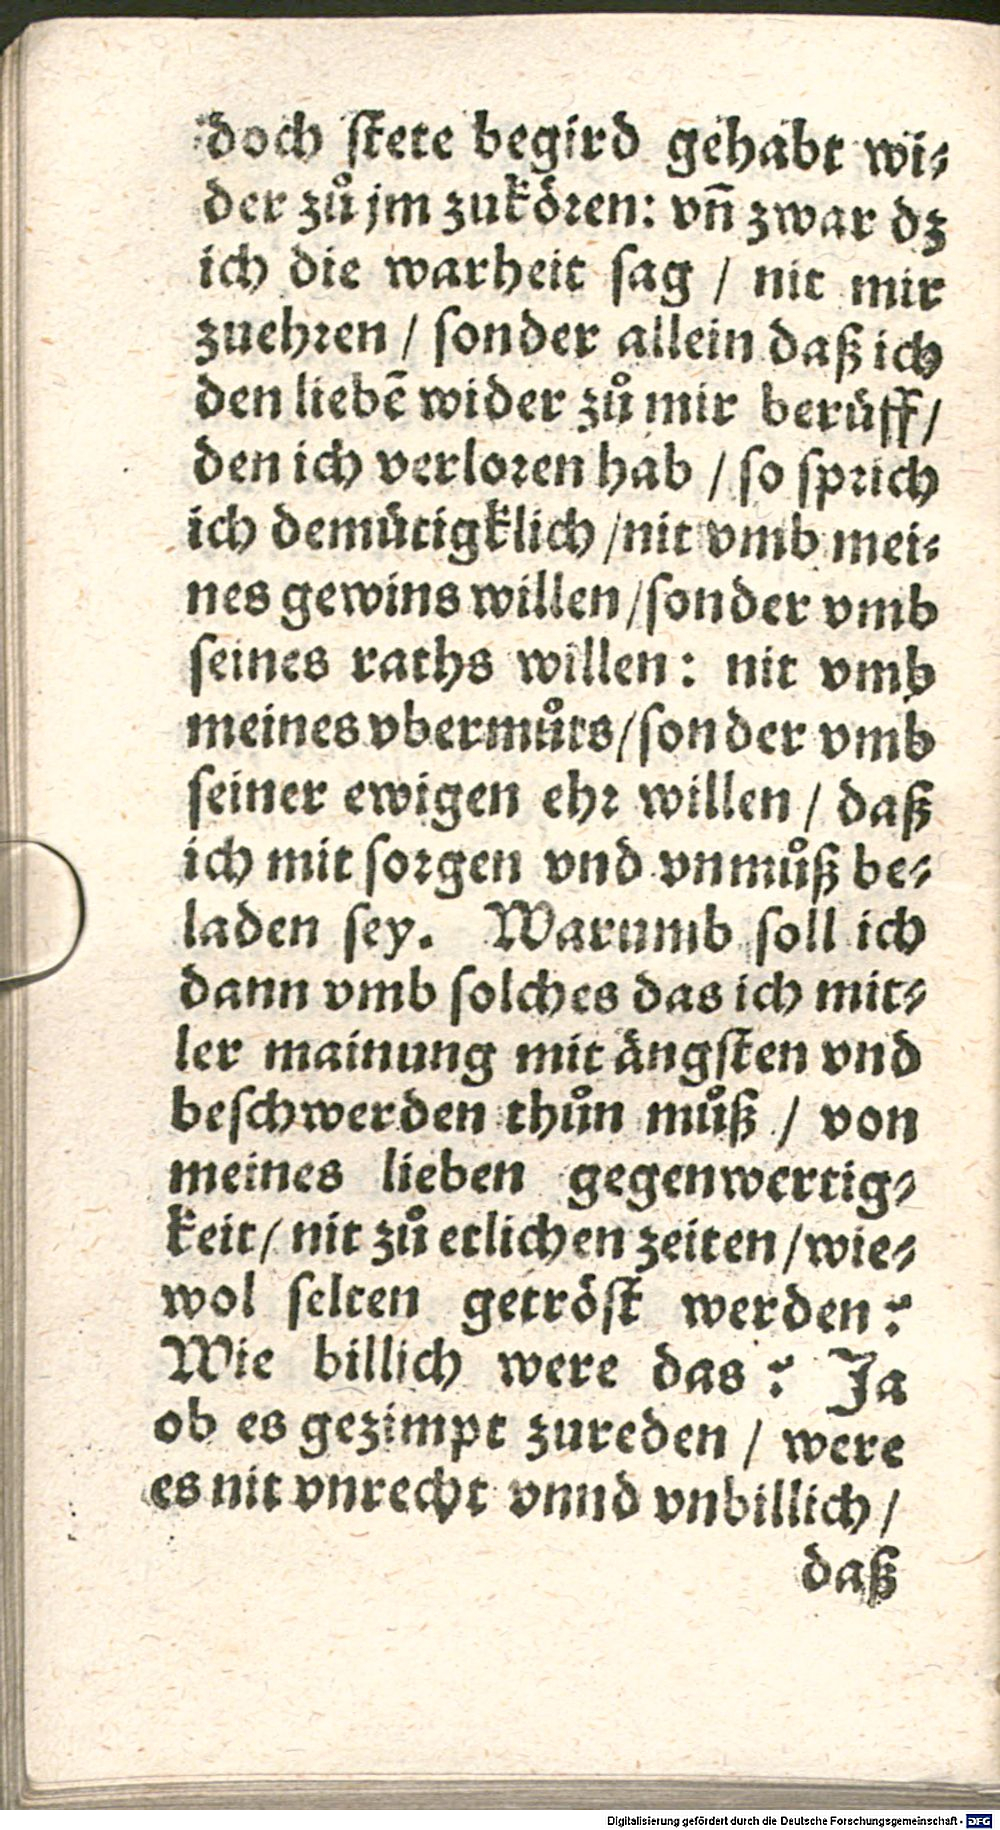 doch stete begird gehabt wi⸗
der zuͦ jm zukören: vñ zwar dz
ich die warheit sag / nit mir
zuehren / sonder allein daß ich
den liebẽ wider zuͦ mir berüff /
den ich verloren hab / so sprich
ich demütigklich / nit vmb mei⸗
nes gewins willen / sonder vmb
seines raths willen: nit vmb
meines vbermuͦts / sonder vmb
seiner ewigen ehr willen / daß
ich mit sorgen vnd vnmuͦß be⸗
laden sey. Warumb soll ich
dann vmb solches das ich mit⸗
ler mainung mit ängsten vnd
beschwerden thuͦn muͦß / von
meines lieben gegenwertig⸗
keit / nit zuͦ etlichen zeiten / wie⸗
wol selten getröst werden?
Wie billich were das? Ja
ob es gezimpt zureden / were
es nit vnrecht vnnd vnbillich /
daß
Digitalisierung gefördert durch die Deutsche Forschungsgemeinschaft - DFG